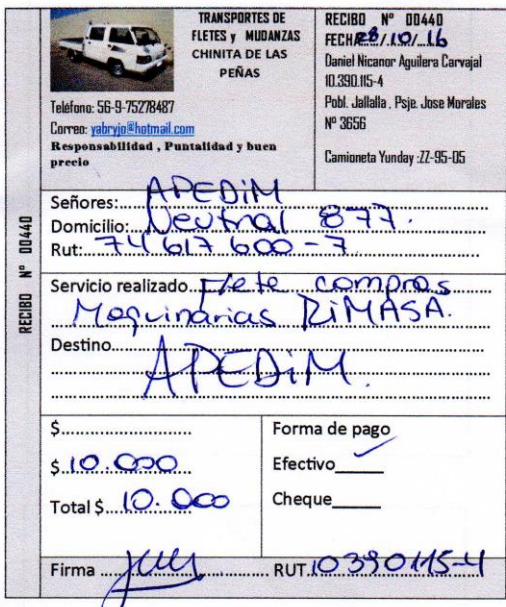 TRANSPORTES DE
FLETES y MUDANZAS
CHINITA DE LAS
PEÑAS
Teléfono: 56-9-75278487
Correo: yabryjo@hotmail.com
Responsabilidad , Puntalidad y buen
precio
RECIBO Nº 00440
FECHA 28/10/16
Daniel Nicanor Aguilera Carvajal
10.390.115-4
Pobl. Jallalla , Psje. Jose Morales
Nº 3656
Camioneta Yunday :ZZ-95-05
RECIBO Nº 00440
Señores: APEDiM
Domicilio: Neutral 877.
Rut: 74617600-7
Servicio realizado Flete compras
Maquinarias RiMASA.
Destino
APEDiM.
$
$ 10.000
Total $ 10.000
Forma de pago
Efectivo
Cheque
Firma
RUT 10390115-4